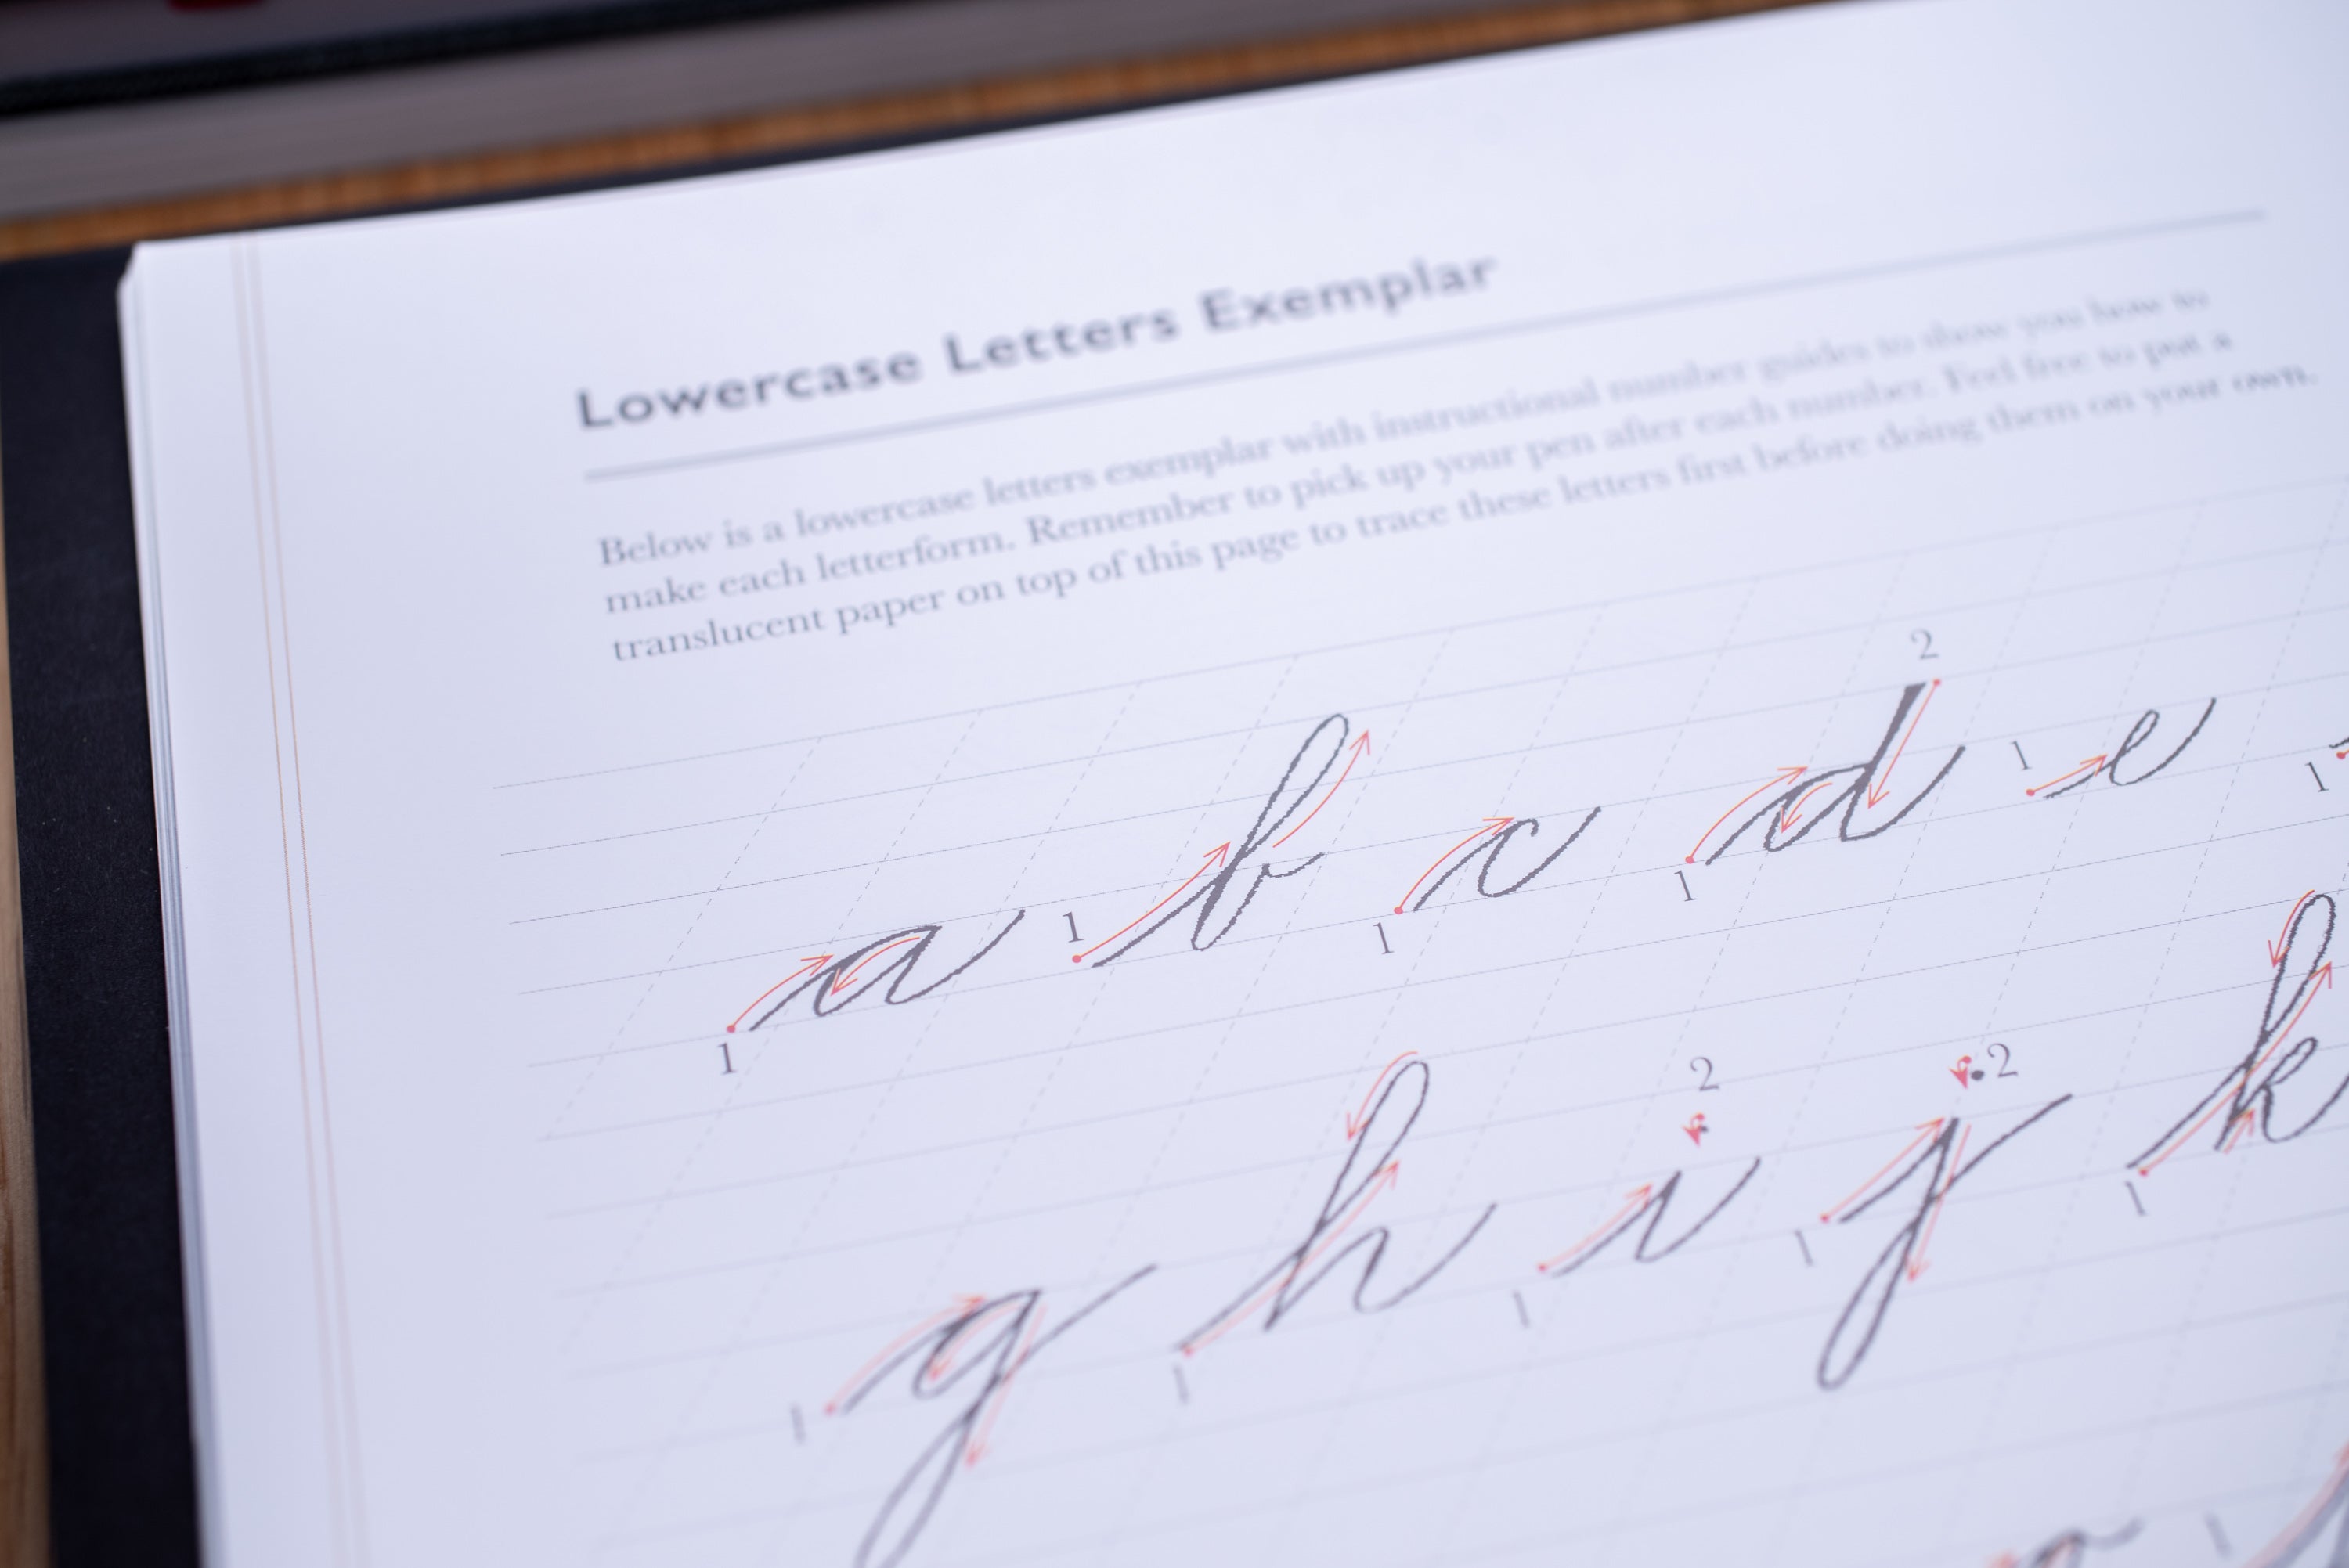 Lowercase Letters Exemplar
Below is a lowercase letters exemplar with instructional number guides to show you how to
make each letterform. Remember to pick up your pen after each number. Feel free to put a
translucent paper on top of this page to trace these letters first before doing them on your own.
2
1 a 1 b 1 c 1 d 1 e 1
2 2
1 g 1 h 1 i 1 j 1 k
1